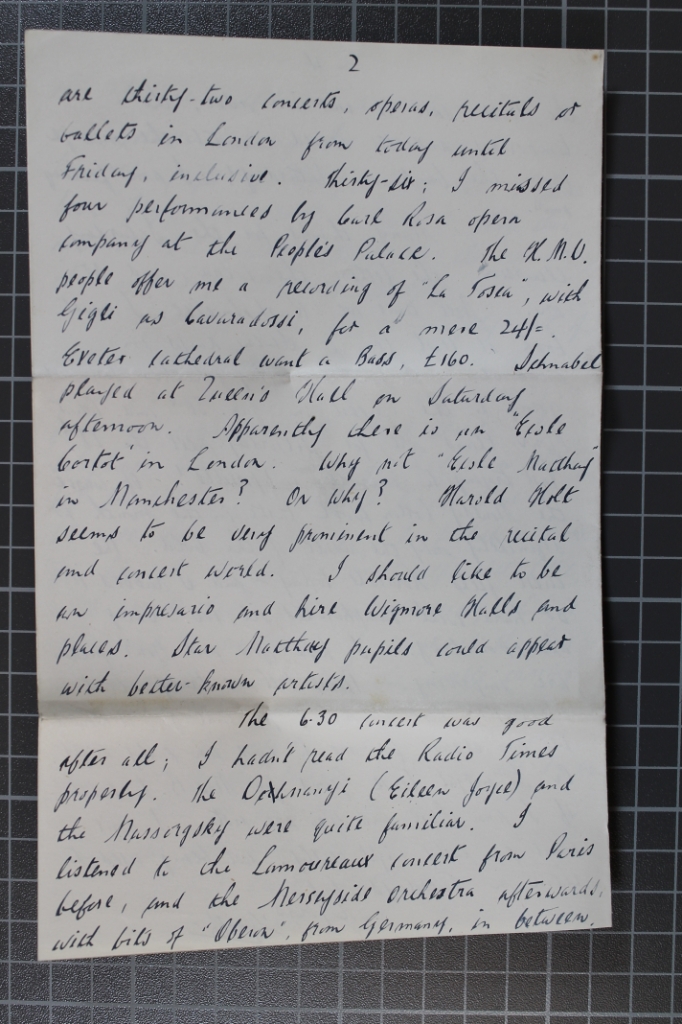 2
are thirty-two concerts, operas, recitals or
ballets in London from today until
Friday, inclusive. Thirty-six; I missed
four performances by Carl Rosa opera
company at the People's Palace. The H.M.V.
people offer me a recording of "La Tosca", with
Gigli as Cavaradossi, for a mere 24/=.
Exeter cathedral want a Bass, £160. Schnabel
played at Queen's Hall on Saturday
afternoon. Apparently there is an "Ecole
Cortot" in London. Why not "Ecole Matthay"
in Manchester? Or why? Harold Holt
seems to be very prominent in the recital
and concert world. I should like to be
an impresario and hire Wigmore Halls and
places. Star Matthay pupils could appear
with better-known artists.
The 6.30 concert was good
after all; I hadn't read the Radio Times
properly. The Dohnanyi (Eileen Joyce) and
the Mussorgsky were quite familiar. I
listened to the Lamoureaux concert from Paris
before, and the Merseyside Orchestra afterwards,
with bits of "Oberon", from Germany, in between.